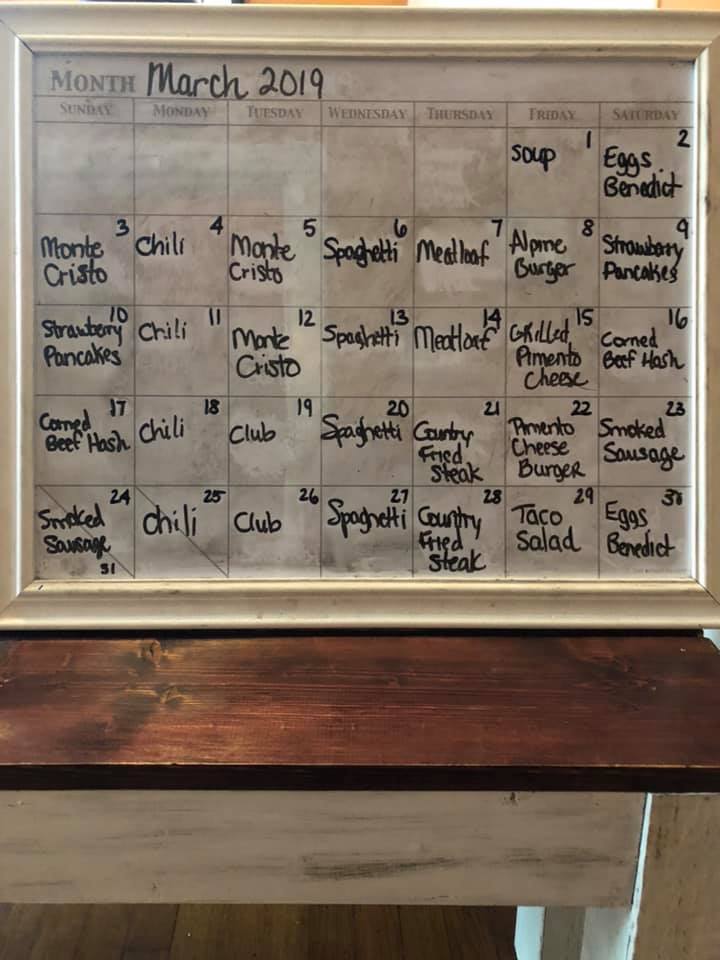 MONTH March 2019
SUNDAY MONDAY TUESDAY WEDNESDAY THURSDAY FRIDAY SATURDAY
1 2
Soup Eggs
Benedict
3 4 5 6 7 8 9
Monte Chili Monte Spaghetti Meatloaf Alpine Strawberry
Cristo Cristo Burger Pancakes
10 11 12 13 14 15 16
Strawberry Chili Monte Spaghetti Meatloaf Grilled Corned
Pancakes Cristo Pimento Beef Hash
Cheese
17 18 19 20 21 22 23
Corned Chili Club Spaghetti Country Pimento Smoked
Beef Hash Fried Cheese Sausage
Steak Burger
24 25 26 27 28 29 30
Smoked Chili Club Spaghetti Country Taco Eggs
Sausage Fried Salad Benedict
31 Steak